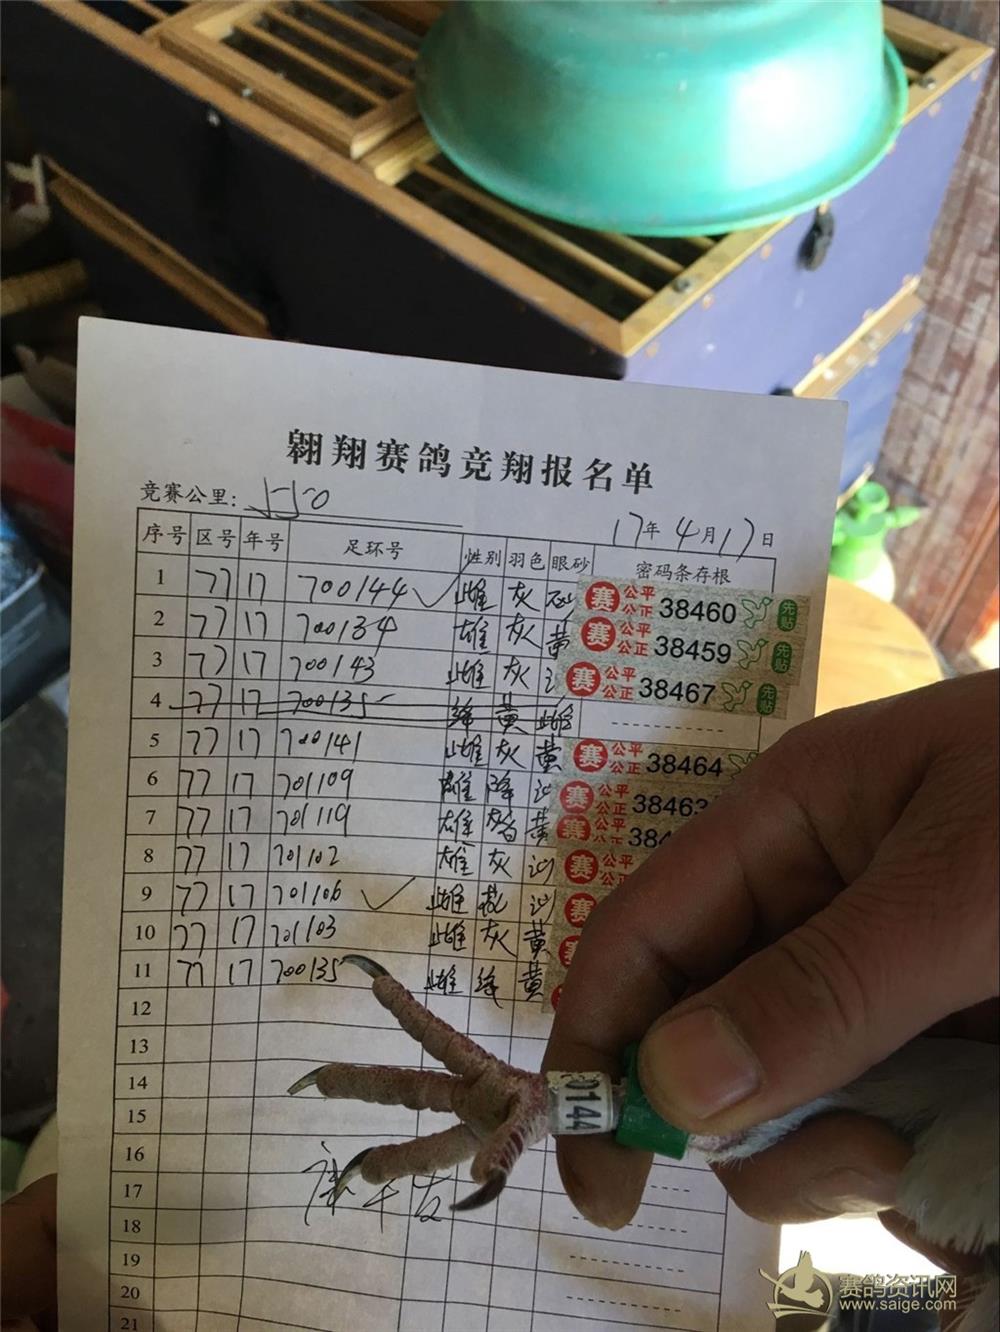 翱翔赛鸽竞翔报名单
竞赛公里: 550
17年4月17日
序号 区号 年号 足环号 性别 羽色 眼砂 密码条存根
1 77 17 700144 ✓ 雌 灰 砂 赛 公平公正 38460 先贴
2 77 17 700134 雄 灰 黄 赛 公平公正 38459 先贴
3 77 17 700143 雌 灰 赛 公平公正 38467 先贴
4 77 17 700135 绛 黄 雌
5 77 17 700141 雌 灰 黄 赛 公平公正 38464
6 77 17 701109 雄 降 沙 赛 公平公正 38463
7 77 17 701119 雄 黄 赛 公平公正 384
8 77 17 701102 雄 灰 沙 赛 公平公
9 77 17 701106 ✓ 雌 沙 赛
10 77 17 701103 雌 灰 黄 赛
11 77 17 700135 雌 绛 黄
12
13
14
15
16
17
18
19
20
21
0144
赛鸽资讯网
www.saige.com